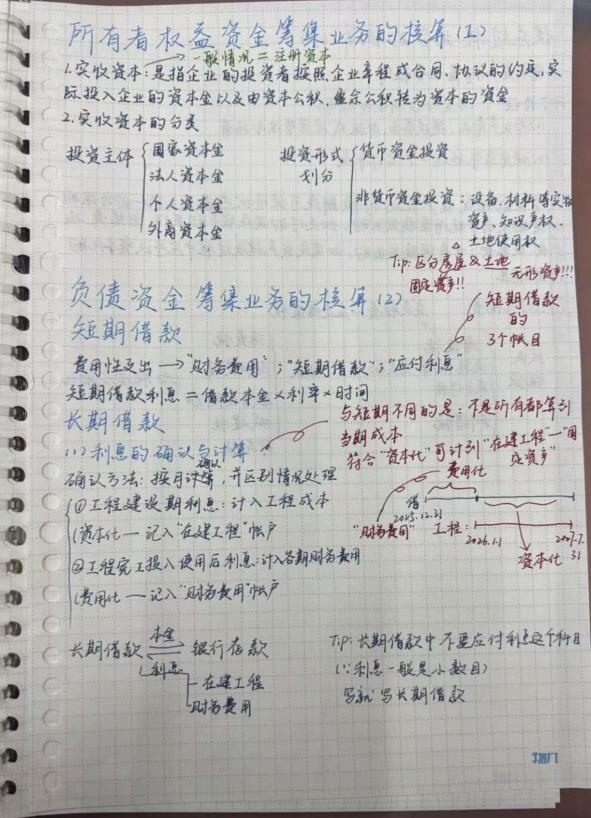 所有者权益资金筹集业务的核算(1)
一般情况=注册资本
1.实收资本:是指企业的投资者按照企业章程或合同、协议的约定,实
际投入企业的资本金以及由资本公积、盈余公积转为资本的资金
2.实收资本的分类
投资主体
国家资本金
法人资本金
个人资本金
外商资本金
投资形式
划分
货币资金投资
非货币资金投资:设备、材料等实物
资产、知识产权、
土地使用权
Tip:区分房屋&土地
固定资产!! 无形资产!!!
负债资金筹集业务的核算(2)
短期借款
短期借款
的
3个帐目
费用性支出→"财务费用";"短期借款";"应付利息"
短期借款利息=借款本金×利率×时间
长期借款
与短期不同的是:不是所有都算到
当期成本
符合"资本化"可计到"在建工程"—"固
定资产"
(1)利息的确认与计算
确认方法:按月计算,并区别情况处理
确认
①工程建设期利息:计入工程成本
(资本化—记入"在建工程"帐户
②工程完工投入使用后利息:计入各期财务费用
(费用化—记入"财务费用"帐户
费用化
借
2025.12.31
"财务费用"
工程:
2026.1.1
2027.7.
31
资本化
长期借款
本金
银行存款
利息
在建工程
财务费用
Tip:长期借款中不要应付利息这个科目
(∵利息一般是小数目)
写长期借款